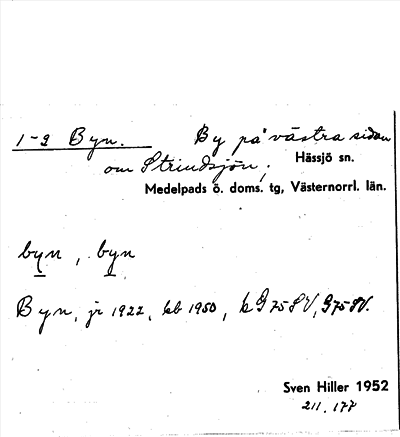 1-2 Byn. By på västra sidan
om Strindsjön, Hässjö sn.
Medelpads ö. doms. tg, Västernorrl. län.
byn, byn
Byn, jr 1922, kb 1950, k G 75 8 V, G 75 8V.
Sven Hiller 1952
211. 177